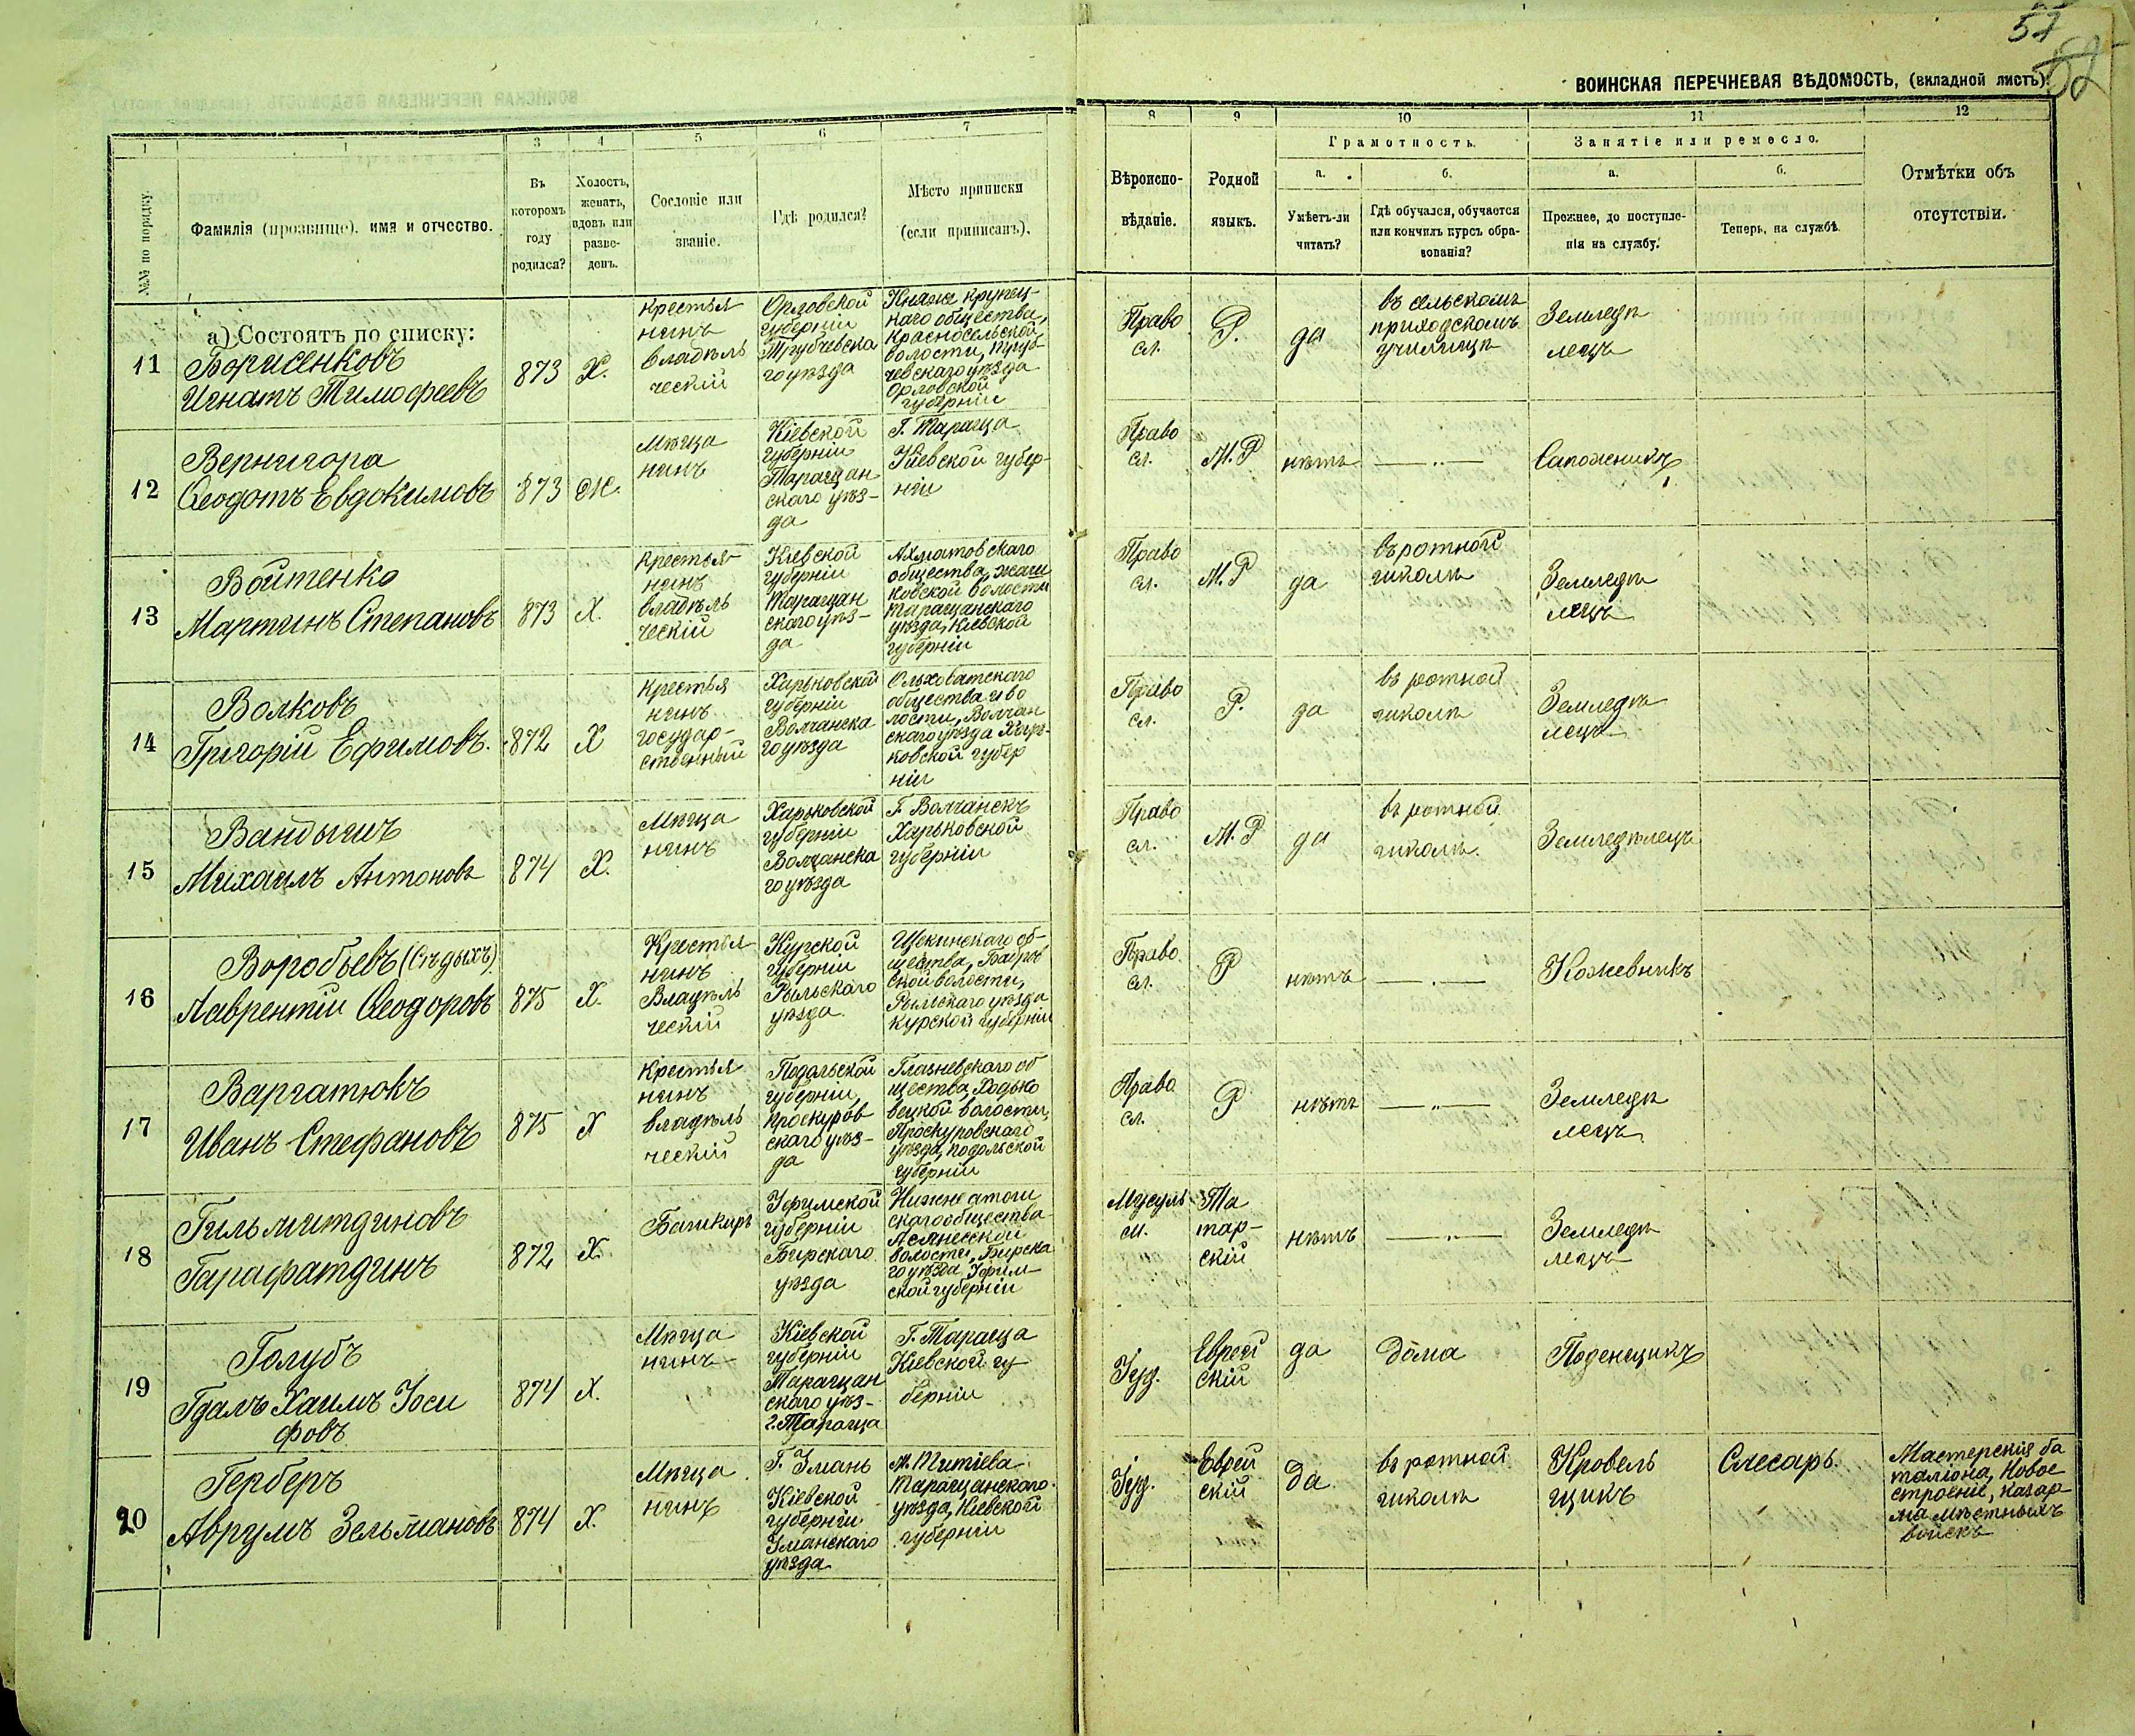 57
62
ВОИНСКАЯ ПЕРЕЧНЕВАЯ ВѢДОМОСТЬ, (вкладной листъ).
1 1 3 4 5 6 7 8 9 10 11 12
№№ по порядку.
Фамилія (прозвище), имя и отчество.
Въ
которомъ
году
родился?
Холостъ,
женатъ,
вдовъ или
разве-
денъ.
Сословіе или
званіе.
Гдѣ родился?
Мѣсто приписки
(если приписанъ).
Вѣроиспо-
вѣданіе.
Родной
языкъ.
Грамотность.
а.
Умѣетъ-ли
читать?
б.
Гдѣ обучался, обучается
или кончилъ курсъ обра-
зованія?
Занятіе или ремесло.
а.
Прежнее, до поступле-
нія на службу.
б.
Теперь, на службѣ.
Отмѣтки объ
отсутствіи.
а) Состоятъ по списку:
11
Борисенковъ
Игнатъ Тимофеевъ
873
Х.
Крестья
нинъ
владѣль
ческій
Орловской
губерніи
Трубчевска
го уѣзда
Княже Крупец-
каго общества,
Красносельской
волости, Труб-
чевскаго уѣзда
Орловской
губерніи
Право
сл.
Р.
да
въ сельскомъ
приходскомъ
училищѣ
Земледѣ
лецъ
12
Вернигора
Ѳеодотъ Евдокимовъ
873
Ж.
Мѣща
нинъ
Кіевской
губерніи
Таращан
скаго уѣз-
да
Г. Тараща
Кіевской губер-
ніи
Право
сл.
М.Р
нѣтъ
— „ —
Сапожникъ
13
Войтенко
Мартинъ Степановъ
873
Х.
Крестья-
нинъ
владѣль
ческій
Кіевской
губерніи
Таращан
скаго уѣз-
да
Ахматовскаго
общества, Жаш
ковской волости
Таращанскаго
уѣзда, Кіевской
губерніи
Право
сл.
М.Р
да
въ ротной
школѣ
Земледѣ
лецъ
14
Волковъ
Григорій Ефимовъ.
872
Х
Крестья
нинъ
государ-
ственный
Харьковской
губерніи
Волчанска
го уѣзда
Ольховатскаго
общества и во
лости, Волчан
скаго уѣзда Харь-
ковской губер
ніи
Право
сл.
Р.
да
въ ротной
школѣ
Земледѣ
лецъ
15
Вандышъ
Михаилъ Антоновъ
874
Х.
Мѣща
нинъ
Харьковской
губерніи
Волчанска
го уѣзда
Г. Волчанскъ
Харьковской
губерніи
Право
сл.
М.Р
да
въ ротной
школѣ.
Земледѣлецъ
16
Воробьевъ (Сѣдыхъ)
Лаврентій Ѳеодоровъ
875
Х.
Крестья
нинъ
Владѣль
ческій
Курской
губерніи
Рыльскаго
уѣзда
Щекинскаго об-
щества,
ской волости,
Рыльскаго уѣзда
Курской губерніи
Право
сл.
Р
нѣтъ
— „ —
Кожевникъ
17
Варчатюкъ
Иванъ Стефановъ
875
Х
Крестья
нинъ
владѣль
ческій
Подольской
губерніи,
Проскуров
скаго уѣз-
да
Глазневскаго об
щества, Ходько
вецкой волости,
Проскуровскаго
уѣзда, Подольской
губерніи
Право
сл.
Р
нѣтъ
— „ —
Земледѣ
лецъ
18
Гильмитдиновъ
Гарафатдинъ
872
Х.
Башкиръ
Уфимской
губерніи
Бирскаго
уѣзда
Нижне
скаго общества
волости, Бирска
го уѣзда Уфим-
ской губерніи
Мусуль
м.
Та
тар-
скій
нѣтъ
— „ —
Земледѣ
лецъ
19
Голубъ
Гдалъ Хаимъ Іоси
фовъ
874
Х.
Мѣща
нинъ
Кіевской
губерніи
Таращан
скаго уѣз-
г. Тараща
Г. Тараща
Кіевской гу
берніи
Іуд.
Еврей
скій
да
дома
Поденщикъ
20
Герберъ
Аврумъ Зельмановъ
874
Х.
Мѣща
нинъ
Г. Умань
Кіевской
губерніи
Уманскаго
уѣзда
м. Титіева
Таращанскаго
уѣзда, Кіевской
губерніи
Іуд.
Еврей
скій
да.
въ ротной
школѣ
Кровель
щикъ
Слесарь.
Мастерскія ба
таліона, Новое
строеніе, казар
ма мѣстныхъ
войскъ